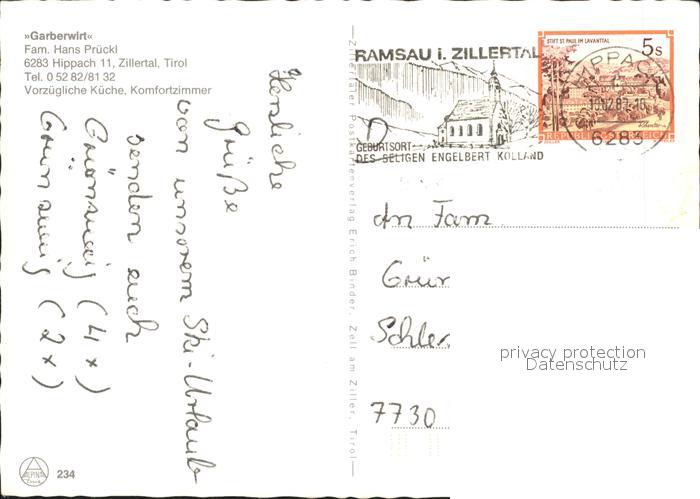 »Garberwirt«
Fam. Hans Prückl
6283 Hippach 11, Zillertal, Tirol
Tel. 0 52 82/81 32
Vorzügliche Küche, Komfortzimmer
Herzliche
Grüße
von unserem Ski-Urlaub
senden euch
(4 x)
(2 x)
ALPINA
234
Zillertaler Postkartenverlag Erich Binder, Zell am Ziller, Tirol
RAMSAU i. ZILLERTAL
GEBURTSORT
DES SELIGEN ENGELBERT KOLLAND
STIFT ST. PAUL IM LAVANTTAL
5s
REPUBLIK ÖSTERREICH
HIPPACH
6283
An Fam.
Grün
Schler
7730
privacy protection
Datenschutz